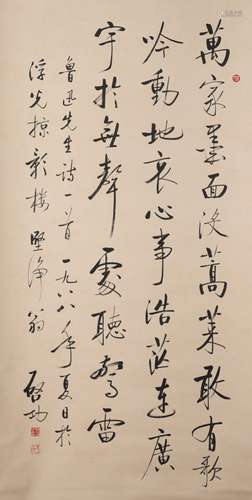 萬家墨面没蒿萊敢有歌
吟動地哀心事浩茫連廣
宇於無聲處聽驚雷
魯迅先生詩一首 一九八八年夏日於
浮光掠影樓 堅淨翁 啓功